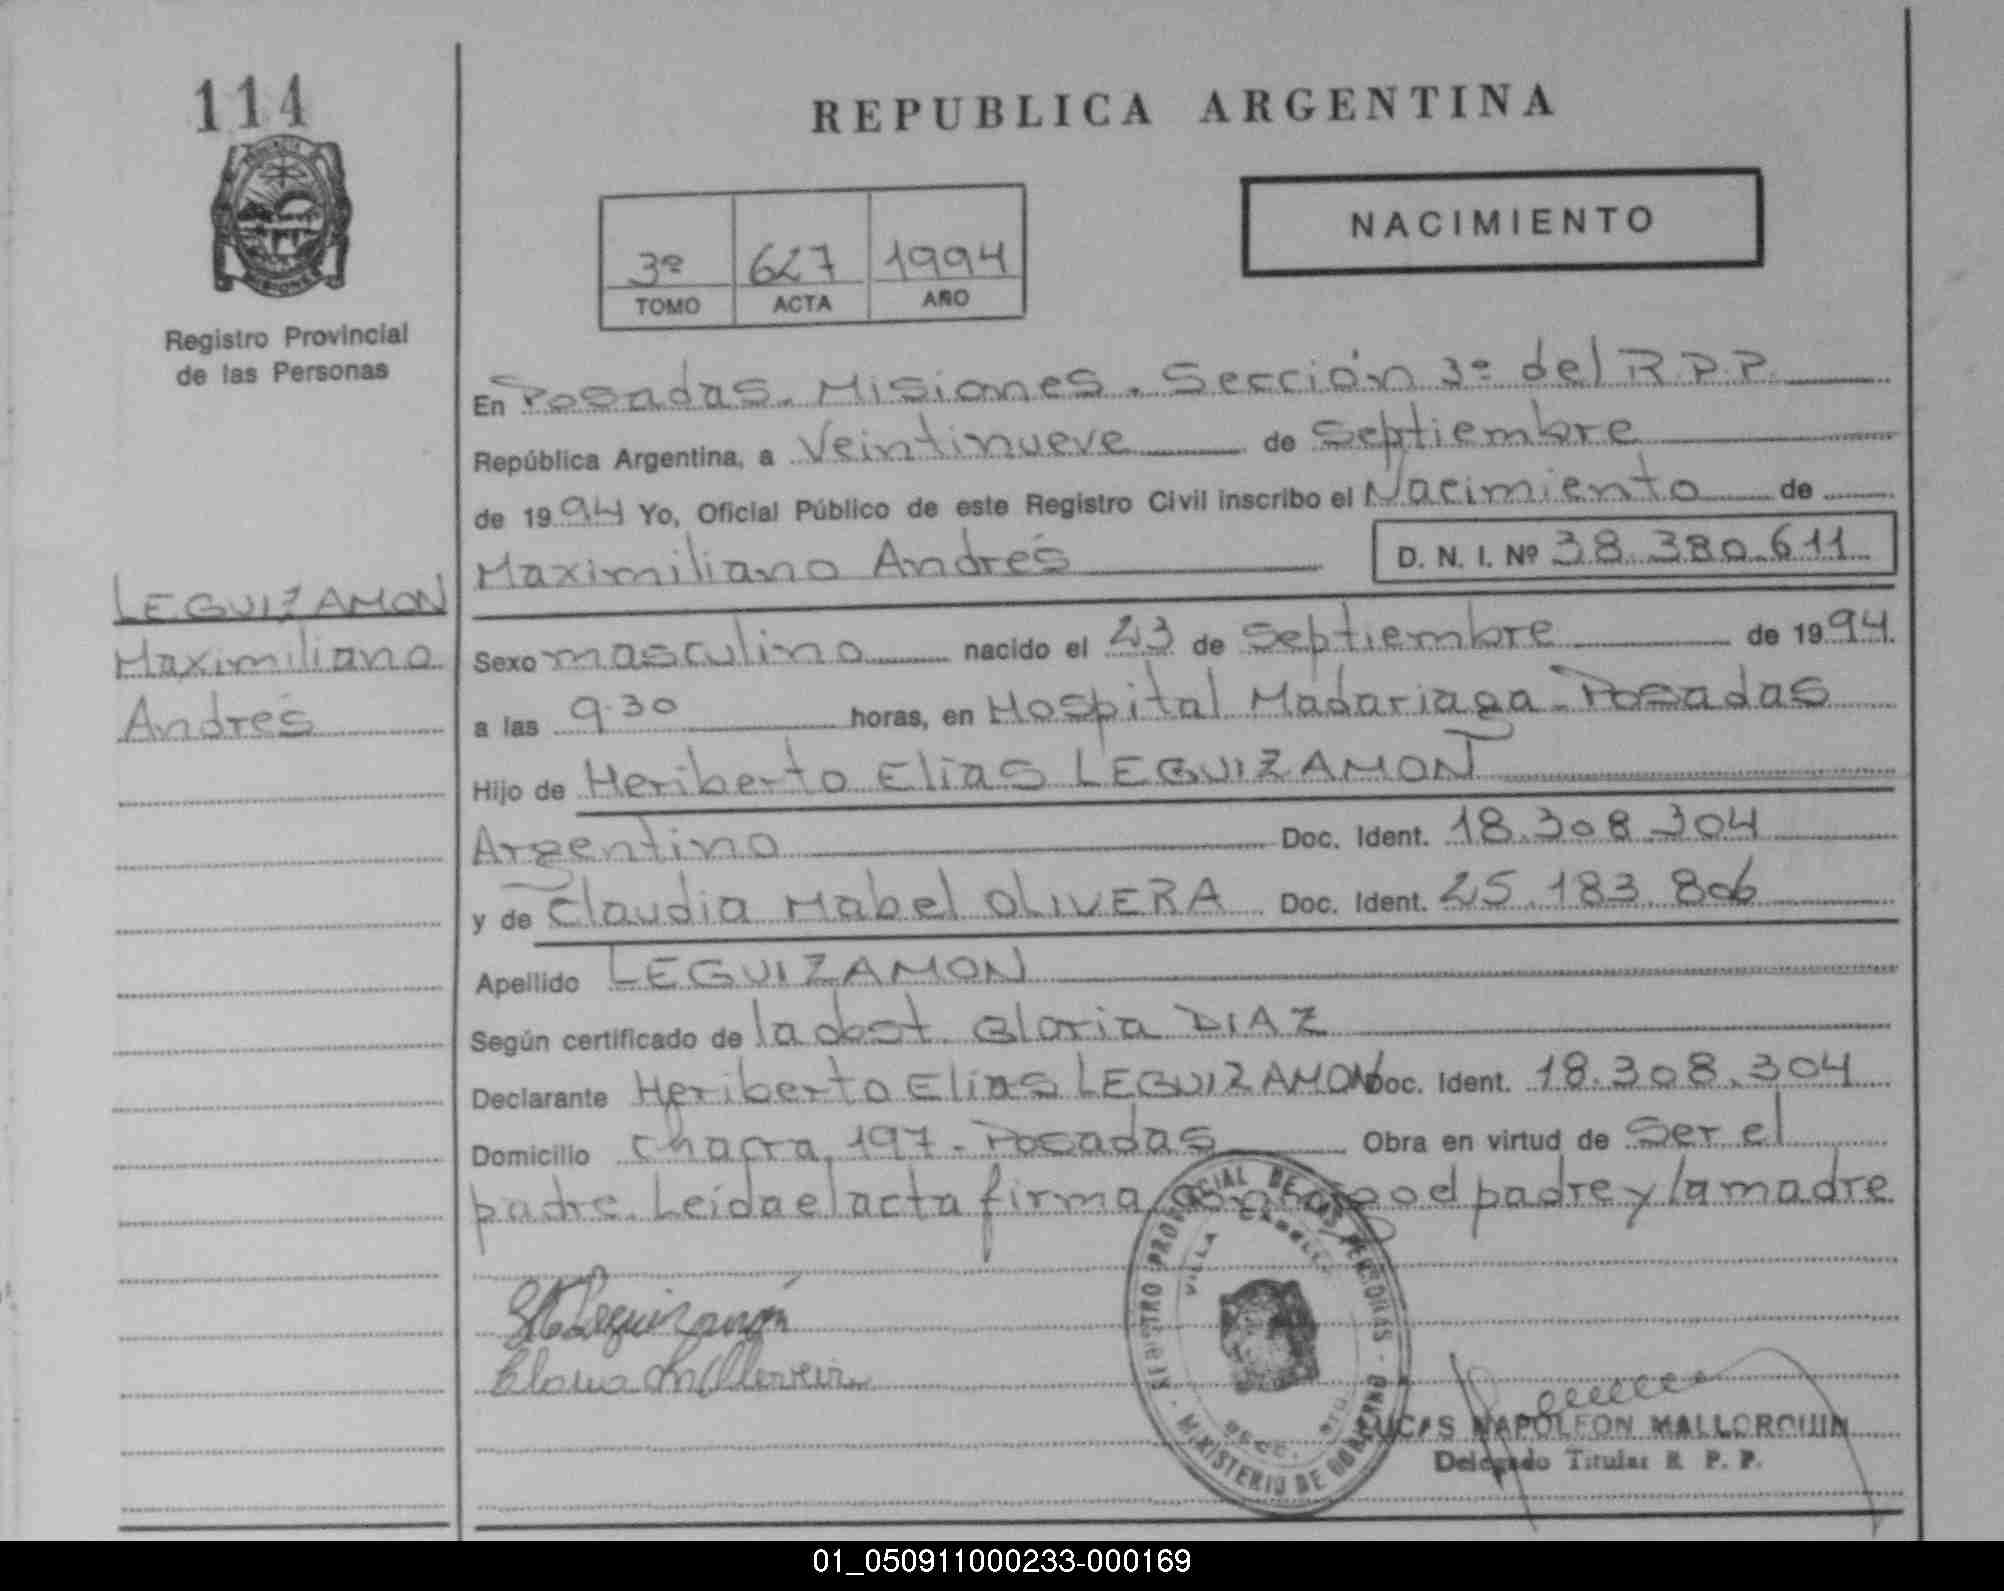 114
REPUBLICA ARGENTINA
NACIMIENTO
3º 627 1994
TOMO ACTA AÑO
Registro Provincial
de las Personas
En Posadas. Misiones. Sección 3º del R.P.P.
República Argentina, a Veintinueve de Septiembre
de 1994 Yo, Oficial Público de este Registro Civil inscribo el Nacimiento de
Maximiliano Andrés D. N. I. Nº 38.380.611
LEGUIZAMON
Maximiliano
Andrés
Sexo masculino nacido el 23 de Septiembre de 1994.
a las 9.30 horas, en Hospital Madariaga - Posadas
Hijo de Heriberto Elias LEGUIZAMON
Argentino Doc. Ident. 18.308.304
y de Claudia Mabel OLIVERA Doc. Ident. 25.183.806
Apellido LEGUIZAMON
Según certificado de la obst. Gloria DIAZ
Declarante Heriberto Elias LEGUIZAMON Doc. Ident. 18.308.304
Domicilio Chacra 197 - Posadas Obra en virtud de Ser el
padre. Leída el acta firma conmigo el padre y la madre
REGISTRO PROVINCIAL DE LAS PERSONAS - MINISTERIO DE GOBIERNO
VILLA CABELLO
Leguizamón
LUCAS NAPOLEON MALLORQUIN
Delegado Titular R. P. P.
01_050911000233-000169